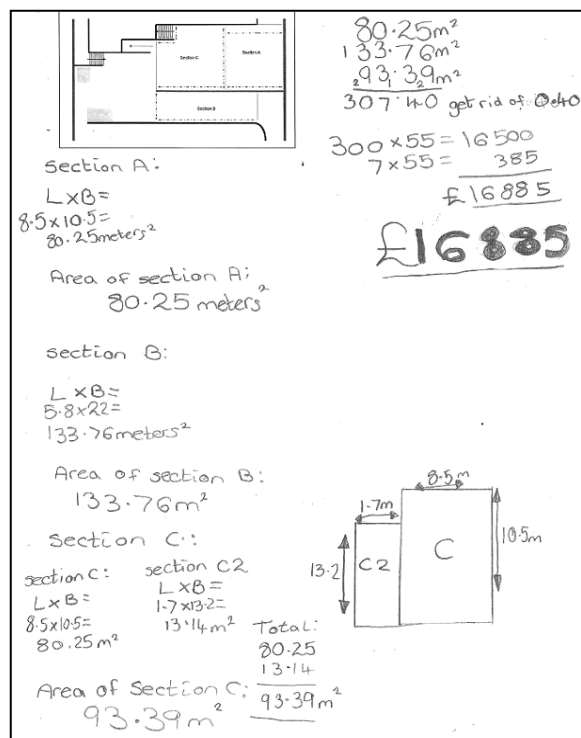 Section C
Section A
Section B
80.25m²
133.76m²
93.39m²
307.40 get rid of 0.40
300 x 55 = 16500
7 x 55 = 385
£16885
£16885
section A:
L x B =
8.5 x 10.5 =
80.25 meters²
Area of section A:
80.25 meters²
section B:
L x B =
5.8 x 22 =
133.76 meters²
Area of section B:
133.76m²
Section C:
section C:
L x B =
8.5 x 10.5 =
80.25 m²
section C2
L x B =
1.7 x 13.2 =
13.14 m²
Total:
80.25
13.14
93.39m²
Area of Section C:
93.39m²
8.5m
1.7m
13.2
C2
C
10.5m